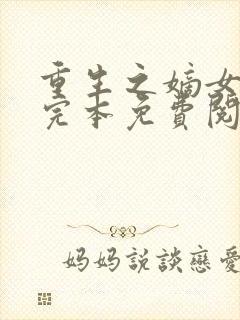 重生之嫡女
完本免費閱
妈妈説談戀愛